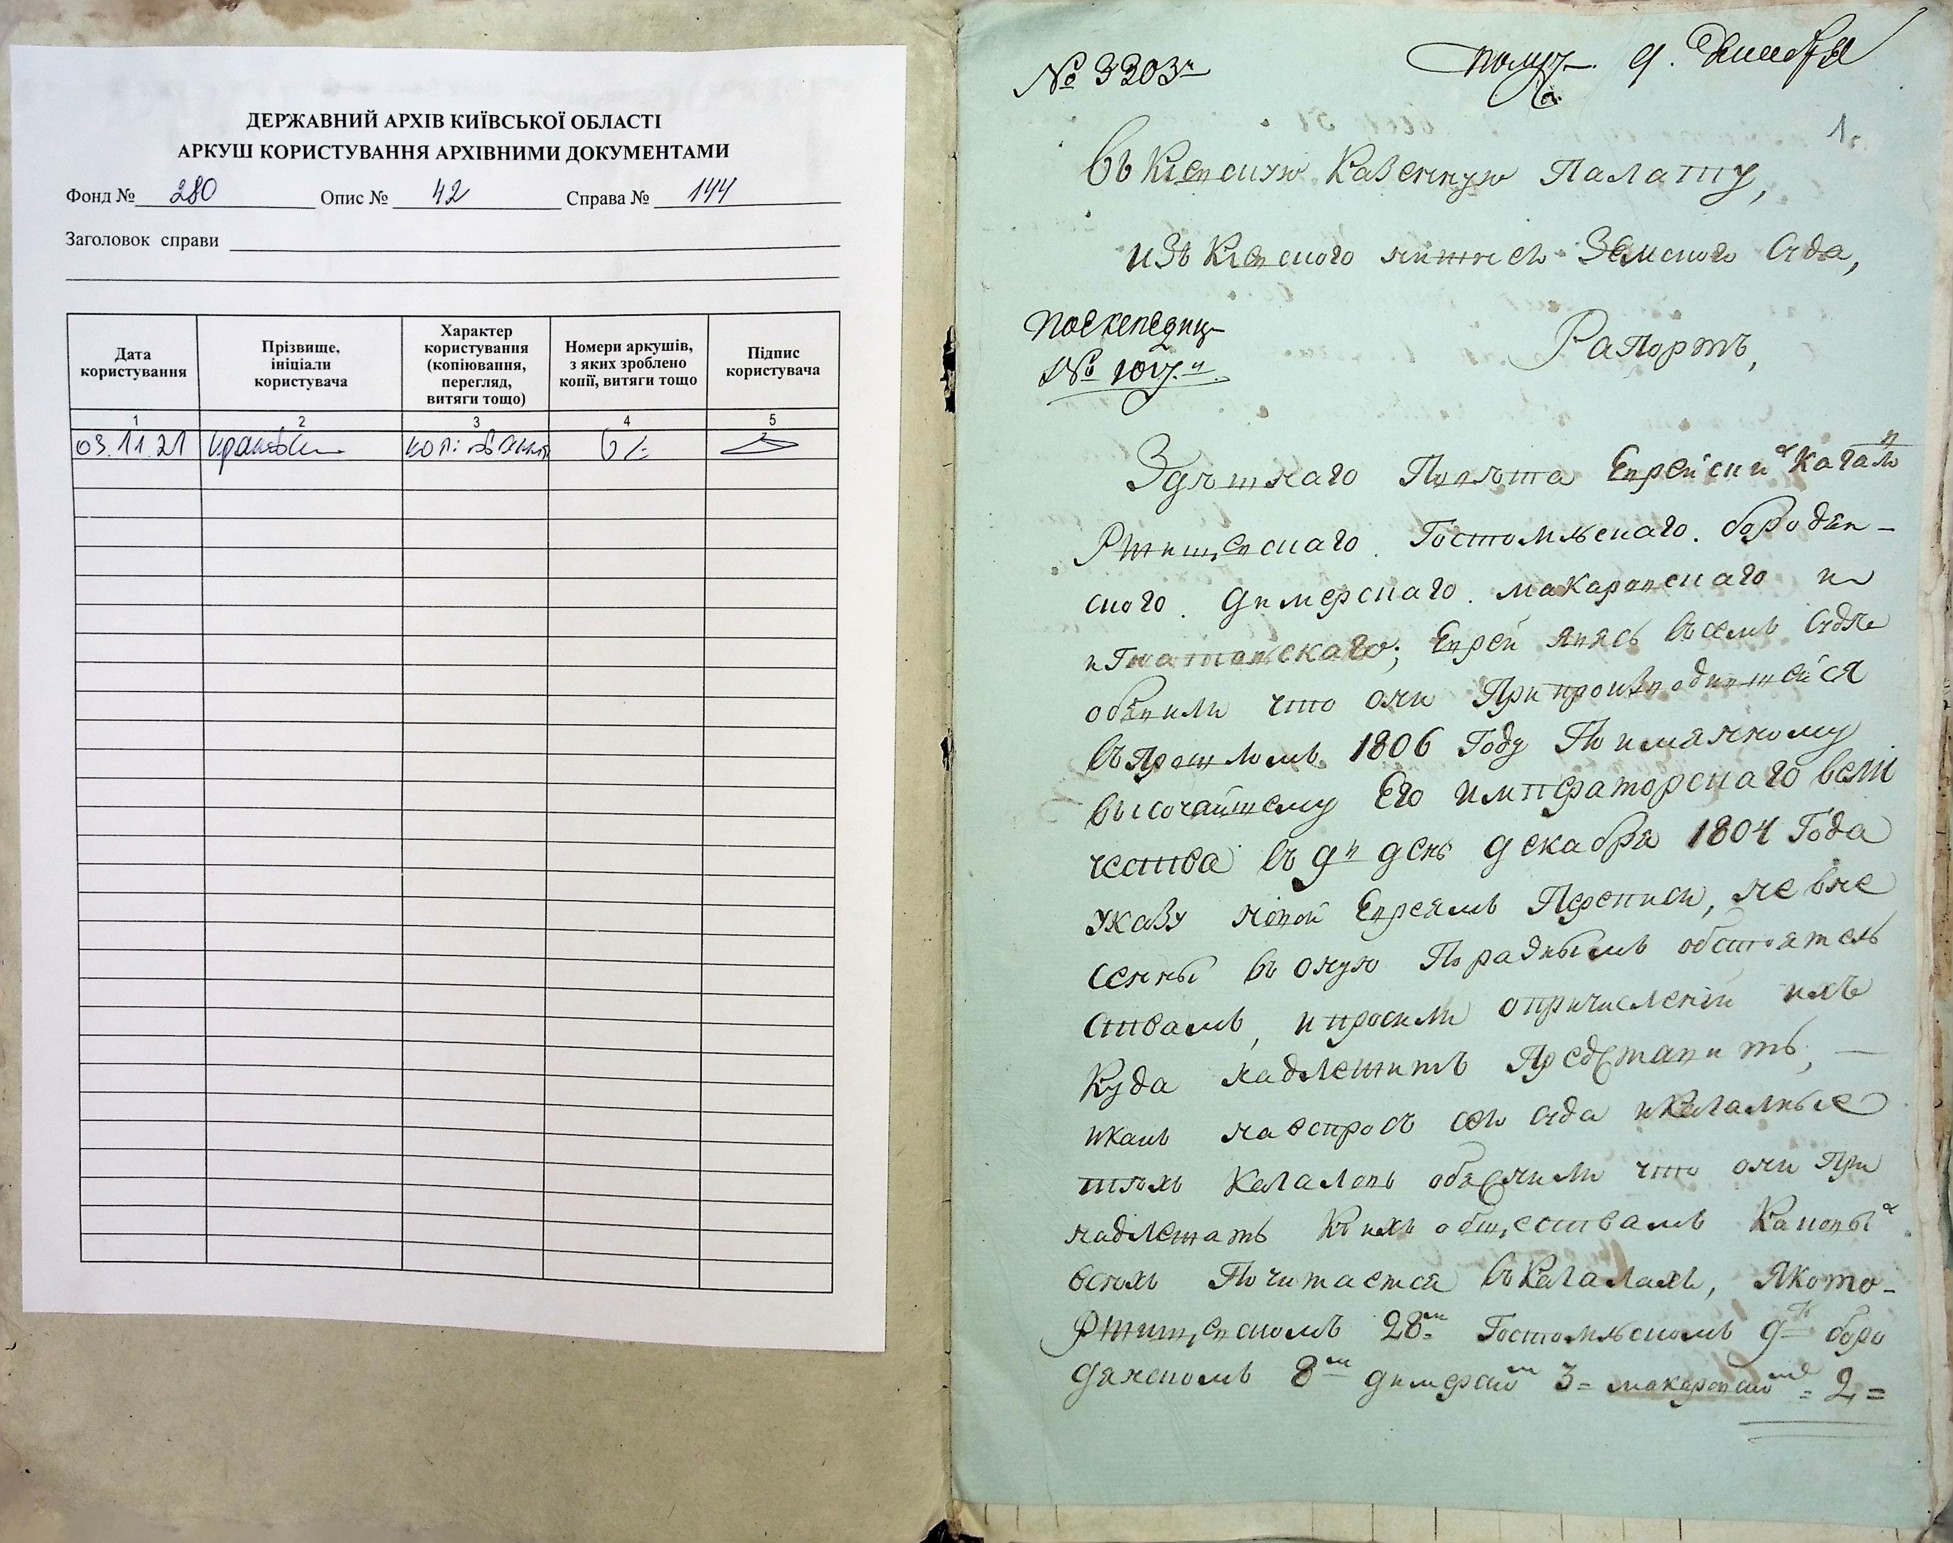 ДЕРЖАВНИЙ АРХІВ КИЇВСЬКОЇ ОБЛАСТІ
АРКУШ КОРИСТУВАННЯ АРХІВНИМИ ДОКУМЕНТАМИ
Фонд № 280 Опис № 42 Справа № 144
Заголовок справи
Дата користування
Прізвище, ініціали користувача
Характер користування (копіювання, перегляд, витяги тощо)
Номери аркушів, з яких зроблено копії, витяги тощо
Підпис користувача
1 2 3 4 5
03.11.21
№ 3203
9. декабря
1.
Въ Киевскую Казенную Палату,
изъ Киевского нижнего Земского Суда,
По експедиц
№ 1017.
Рапортъ,
Здѣшнаго Повѣта Еврейский Кагалъ
Ртищевскаго. Гостомльскаго. бородян-
ского. димерскаго. макаровскаго и
игнатовскаго; Еврей явясь въ семъ Суде
обявили что они При производившейся
въ Прошломъ 1806 Году По имянному
высочайшему Его императорскаго вели
чества въ 9й день декабря 1804 Года
указу новой Евреямъ Переписи, не вне
сенны въ оную По разнымъ обстоятель
ствамъ, и просили о причислении ихъ
Куда надлежитъ Представить, —
и какъ на спросъ сего суда и Кагалные
тѣхъ Кагаловъ обяснили что они При
надлежатъ Къ ихъ обществамъ Каковых
всѣхъ Почитается въ Кагалахъ, Якото-
Ртищевскомъ 28. Гостомльскомъ 9 боро
дянскомъ 8 димерском 3 = макаровском = 2 =